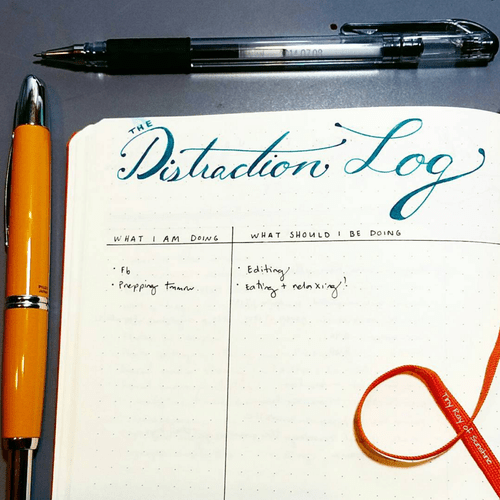 THE
Distraction Log
WHAT I AM DOING
WHAT SHOULD I BE DOING
· Fb
· Editing
· Prepping
· Eating + relaxing!
Tiny Ray of Sunshine